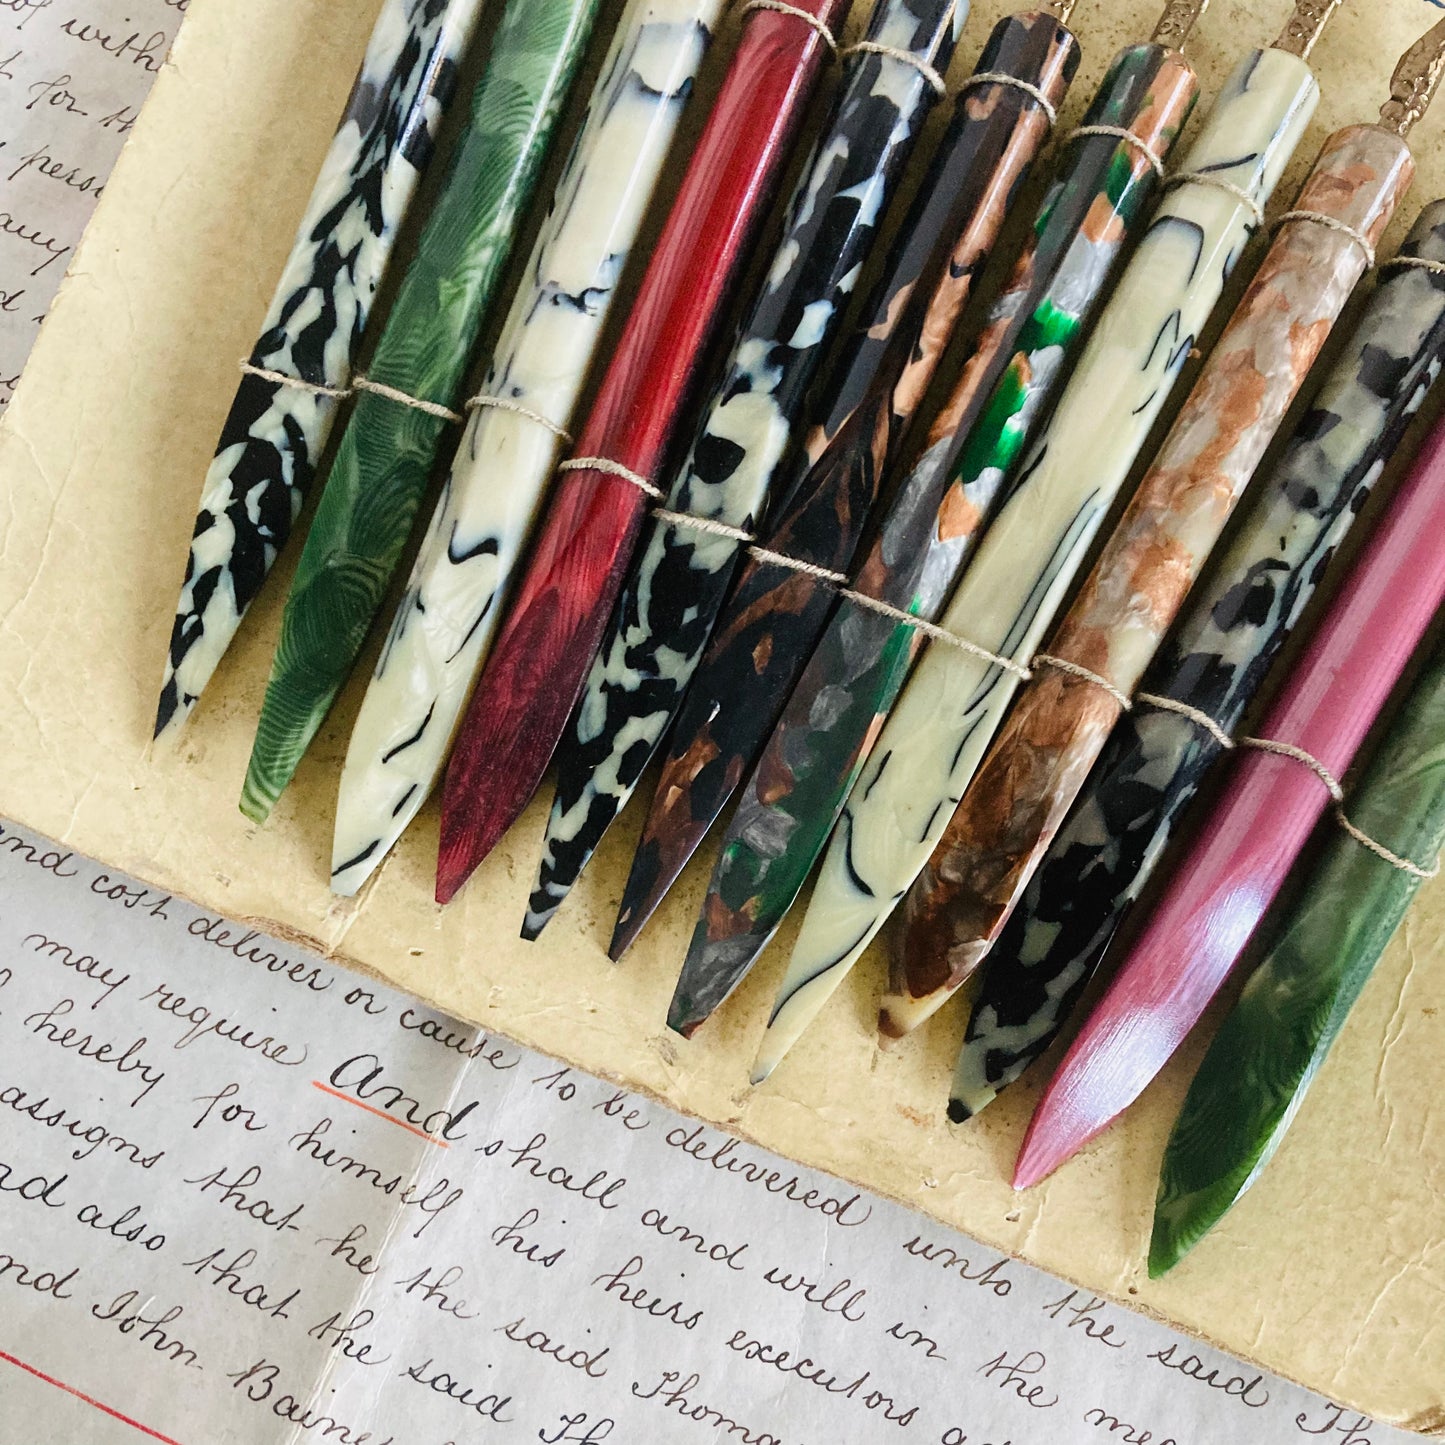 with
for th
perso
any
d
and cost deliver or cause to be delivered unto the said Th
may require And shall and will in the me
hereby for himself his heirs executors ad
assigns that he the said Thoma
nd also that the said Th
nd John Baines